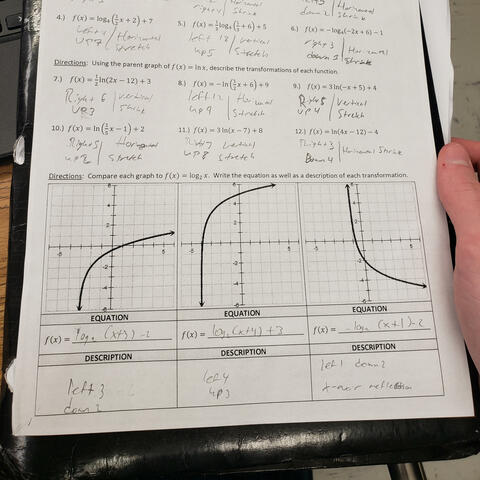 4.) f(x) = log₄(½x + 2) + 7
5.) f(x) = ⅓log₄(½x + 6) + 5
6.) f(x) = −log₄(−2x + 6) − 1
up 7 | Horizontal Stretch
left 12 up 5 | Vertical Stretch
right 3 down 1 | Horizontal
Directions: Using the parent graph of f(x) = ln x, describe the transformations of each function.
7.) f(x) = ½ln(2x − 12) + 3
8.) f(x) = −ln(½x + 6) + 9
9.) f(x) = 3 ln(−x + 5) + 4
Right 6 | vertical
left 12 | Horizontal
Right 5 | Vertical
up 3
up 9 | Stretch
up 4
10.) f(x) = ln(⅕x − 1) + 2
11.) f(x) = 3 ln(x − 7) + 8
12.) f(x) = ln(4x − 12) − 4
Right 5 | Horizontal
Right 7 | vertical
Right 3 | Horizontal
up 2 | Stretch
up 8 | Stretch
Down 4
Directions: Compare each graph to f(x) = log₂ x. Write the equation as well as a description of each transformation.
EQUATION EQUATION EQUATION
f(x) = log₂ (x+3) -2
f(x) = log₂ (x+4) +3
f(x) = -log₂ (x+1)-2
DESCRIPTION DESCRIPTION DESCRIPTION
left 3
left 4
left 1 down 2
down 2
up 3
x-axis reflection